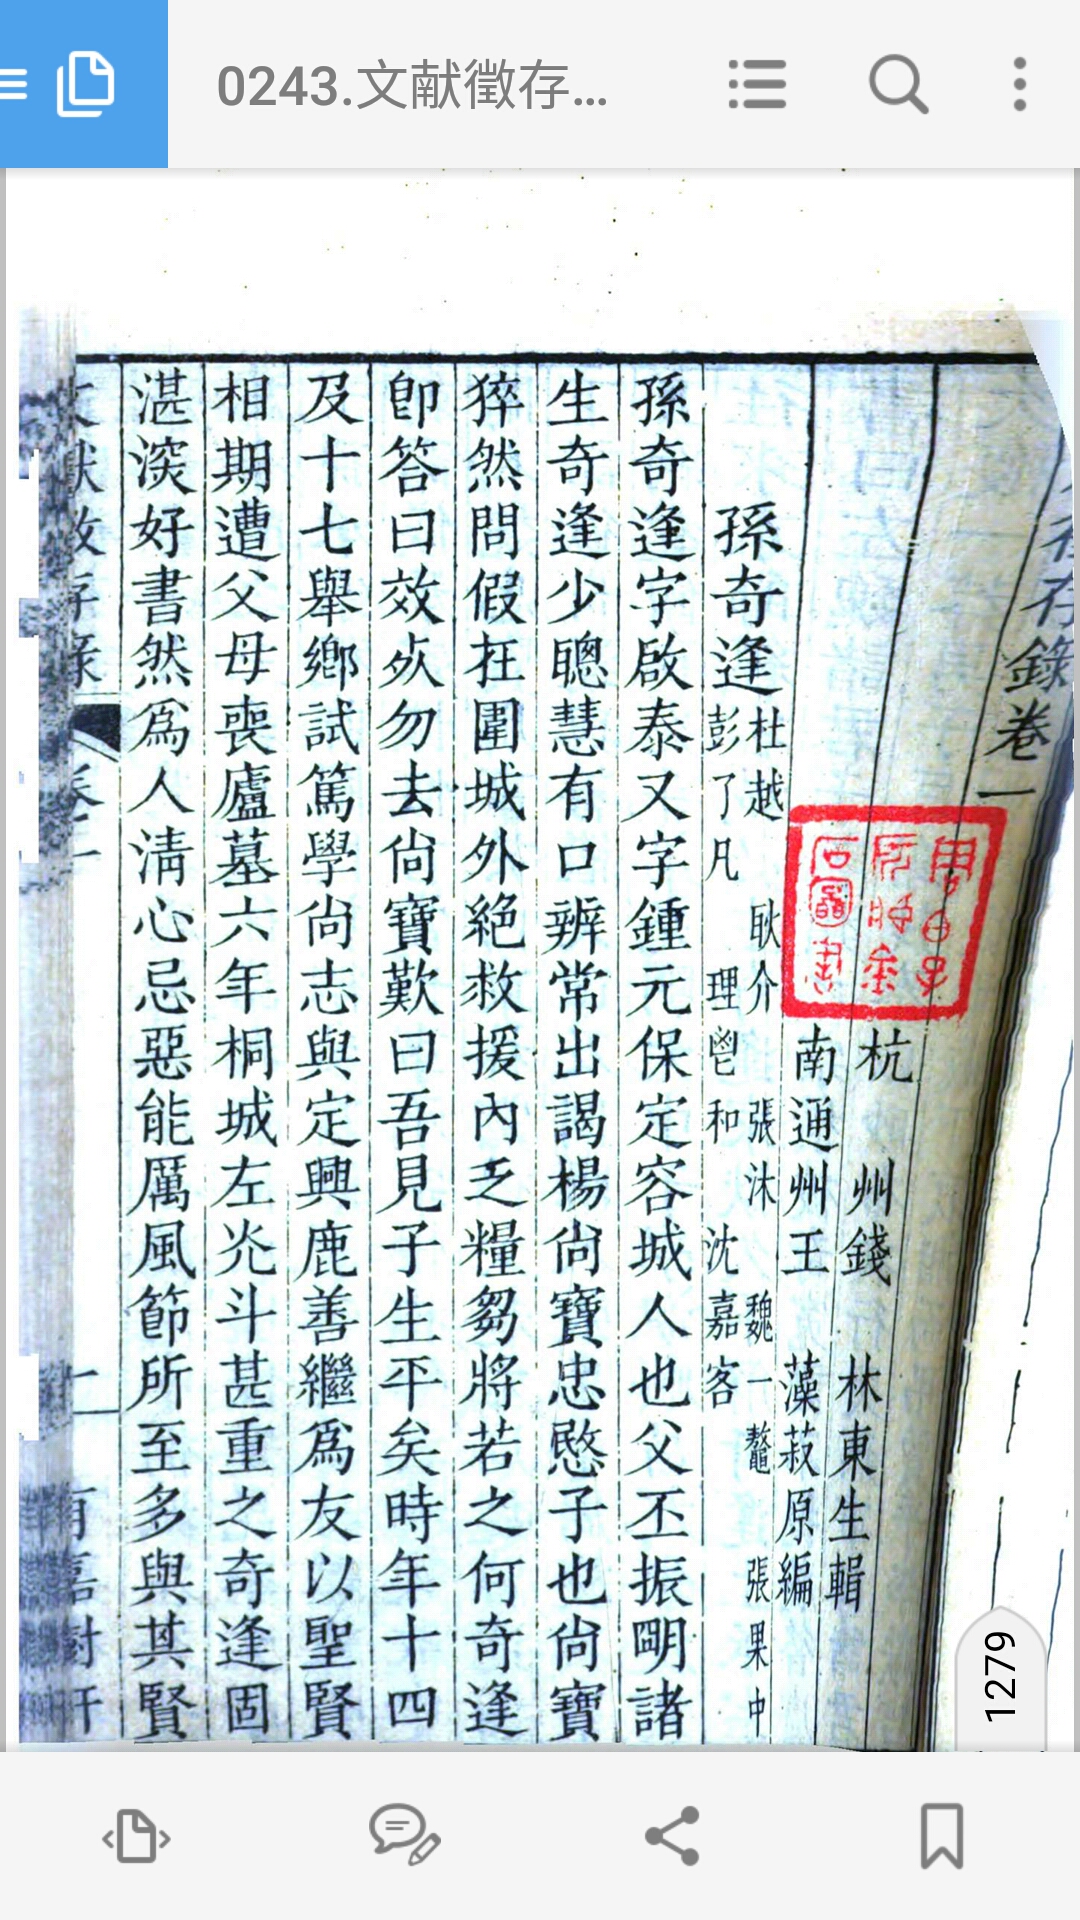 0243.文献徵存...
存錄卷一
杭州錢 林東生輯
南通州王 藻菽原編
孫奇逢
杜越 耿介 張沐 魏一鼇 張果中
彭了凡 理鬯和 沈嘉客
孫奇逢字啟泰又字鍾元保定容城人也父丕振朙諸
生奇逢少聰慧有口辨常出謁楊尙寶忠愍子也尙寶
猝然問假在圍城外絕救援內乏糧芻將若之何奇逢
卽答曰效死勿去尙寶歎曰吾見子生平矣時年十四
及十七舉鄉試篤學尙志與定興鹿善繼爲友以聖賢
相期遭父母喪廬墓六年桐城左光斗甚重之奇逢固
湛深好書然爲人淸心忌惡能厲風節所至多與其賢
1279